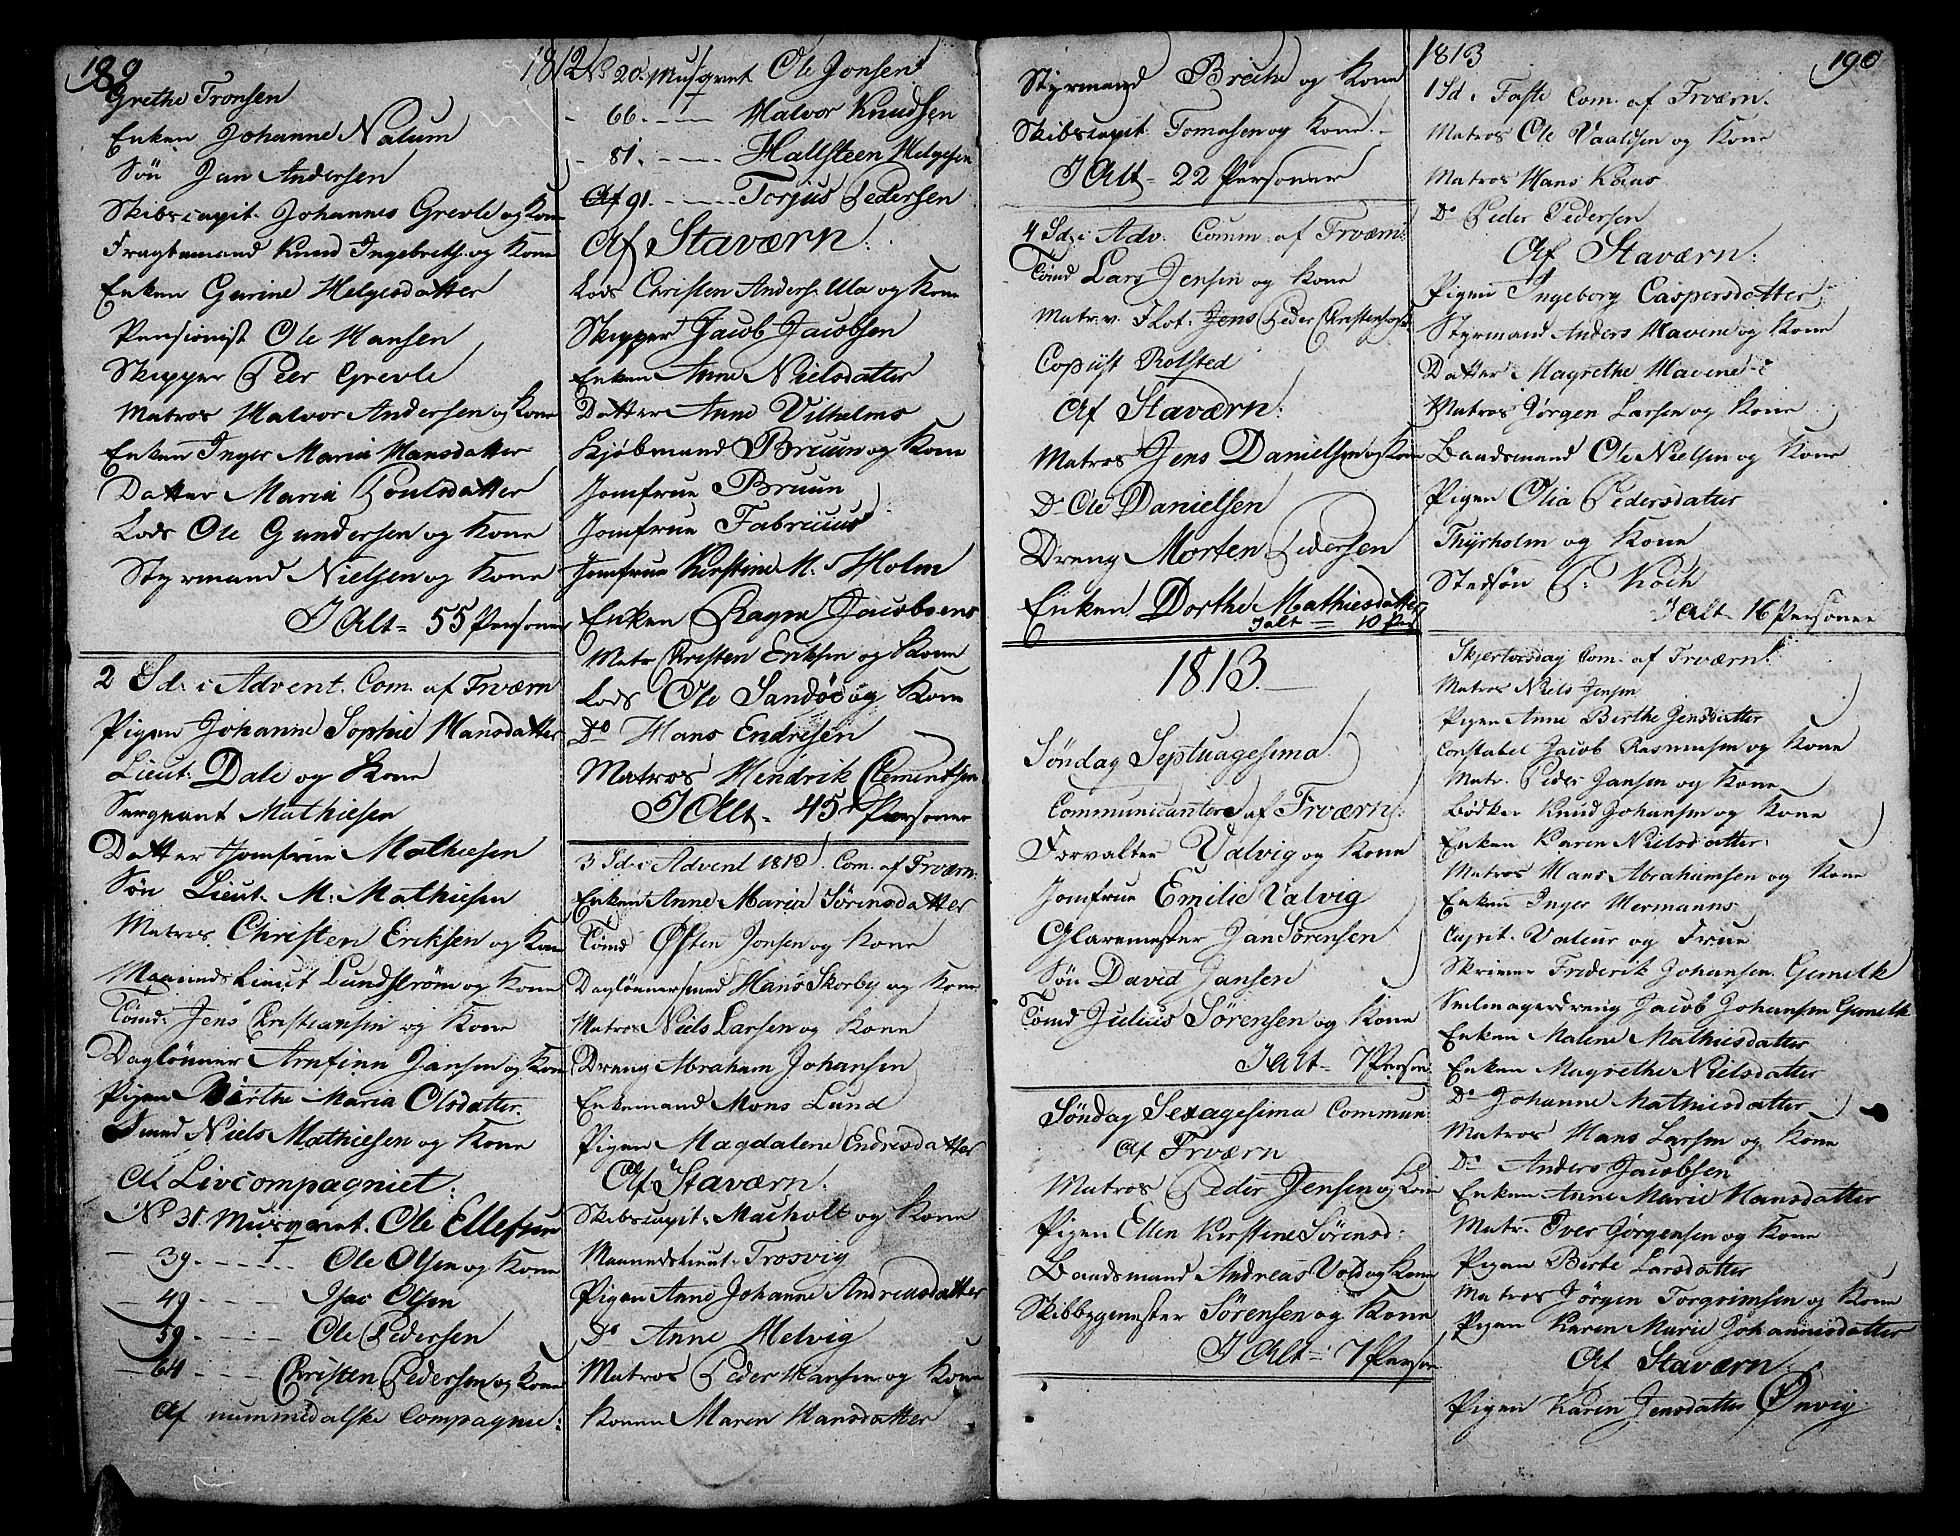 189
1812
Grethe Tronsen
Enken Johanne Nalum
Søn Jan Andersen
Skibscapit. Johannes Grevle og Kone
Fragtemand Knud Ingebreths. og Kone
Enken Gurine Helgesdatter
Pensionist Ole Hansen
Skipper Peer Grevle
Matros Halvor Andersen og Kone
Enken Inger Maria Hansdatter
Datter Maria Poulsdatter
Lods Ole Gundersen og Kone
Styrmand Nielsen og Kone
I Alt = 55 Personer
2 Sd: i Advent. Com. af Frværn
Pigen Johanne Sophie Hansdatter
Lieut: Dale og Kone
Sergeant Mathiesen
Datter Jomfrue Mathiesen
Søn Lieut. M: Mathiesen
Matros Christen Eriksen og Kone
Maaneds Lieut Lundstrøm og Kone
Tømd: Jens Christiansen og Kone
Daglønner Arnfinn Jansen og Kone
Pigen Birthe Maria Olsdatter
Smed Niels Mathiesen og Kone
Af Livcompagniet:
No 31. Musqvet. Ole Ellefsen
- 39. - - - - Ole Olsen og Kone
- 49 - - - - Isac Olsen
- 59 - - - - Ole Pedersen
- 64 - - - - Christen Pedersen og Kone
Af nummedalske Compagnie:
No 20. Musqvet Ole Jonsen
- 66. - - - Halvor Knudsen
- 81. - - - Hallsteen Helgesen
Af 91. - - - Torjus Pedersen
Af Staværn:
Lods Christen Anders. Ula og Kone
Skipper Jacob Jacobsen
Enken Anne Nielsdatter
Datter Anne Vilhelms
Kjøbmand Bruun og Kone
Jomfrue Bruun
Jomfrue Fabricius
Jomfrue Kirstine M. Holm
Enken Ragne Jacobsens
Matr Christen Eriksen og Kone
Lods Ole Sandøe og Kone
Do Hans Endresen
Matros Hendrik Clementsen
I Alt = 45 Personer
3 Sd: i Advent 1812. Com. af Frværn:
Enken Anne Maria Sørensdatter
Tømd Østen Jonsen og Kone
Dagløunersmed Hans Skorby og Kone
Matros Niels Larsen og Kone
Dreng Abraham Johansen
Enkemand Mons Lund
Pigen Magdalene Endresdatter
Af Staværn:
Skibscapit: Macholt og Kone
Maanedslieut. Trosvig
Pigen Anne Johanne Andreasdatter
Do Anne Helvig
Matros Peder Hansen og Kone
Konen Maren Hansdatter
Styrmand Brethe og Kone
Skibscapit. Tomesen og Kone
I Alt = 22 Personer
4 Sd: i Adv. Comm: af Frværn:
Tømd Lars Jensen og Kone
Matr. v. Flot: Jens Peder Christophers.
Copiist Rolsted
Af Staværn:
Matros Jens Danielsen og Kone
Do Ole Danielsen
Dreng Morten Pedersen
Enken Dorthe Mathiesdatter
I alt = 10 Pers
1813.
Søndag Septuagesima
Communicantere af Frværn:
Forvalter Valvig og Kone
Jomfrue Emilie Valvig
Glarmester Jan Sørensen
Søn David Jansen
Tømd Julius Sørensen og Kone
I Alt = 7 Person
Søndag Sexagesima Commun:
Af Frværn
Matros Peder Jensen og Kone
Pigen Ellen Kirstine Sørensd:
Baadsmand Andreas Vold og Kone
Skibbygmester Sørensen og Kone
I Alt = 7 Person
1813
190
1 Sd: i Faste Com: af Frværn.
Matros Ole Vaaldsen og Kone
Matros Hans Kaas
Do Peder Pedersen
Af Staværn:
Pigen Ingeborg Caspersdatter
Styrmand Anders Mavene og Kone
Datter Magrethe Mavene
Matros Jørgen Larsen og Kone
Baadsmand Ole Nielsen og Kone
Pigen Olia Pedersdatter
Thyrholm og Kone
Stedsøn P: Koch
I Alt 16 Personer
Skjertorsdag Com. af Frværn.
Matros Niels Jensen
Pigen Anne Birthe Jensdatter
Constabel Jacob Rasmusen og Kone
Matr. Peder Jansen og Kone
Bødker Knud Johansen og Kone
Enken Karen Nielsdatter:
Matros Hans Abrahamsen og Kone
Enken Inger Hermanns
Capit. Valeur og Frue
Skriver Friderik Johansen Gemelk
Seilmagerdreng Jacob Johansen Gemelk
Enken Malene Mathiesdatter
Enken Magrethe Nielsdatter
Do Johanne Mathiesdatter
Matros Hans Larsen og Kone
Do Anders Jacobsen
Enken Anne Marie Hansdatter
Matr. Iver Jørgensen og Kone
Pigen Birte Larsdatter
Matros Jørgen Torgrimsen og Kone
Pigen Karen Marie Johannisdatter
Af Staværn:
Pigen Karen Jensdatter Ønvig.